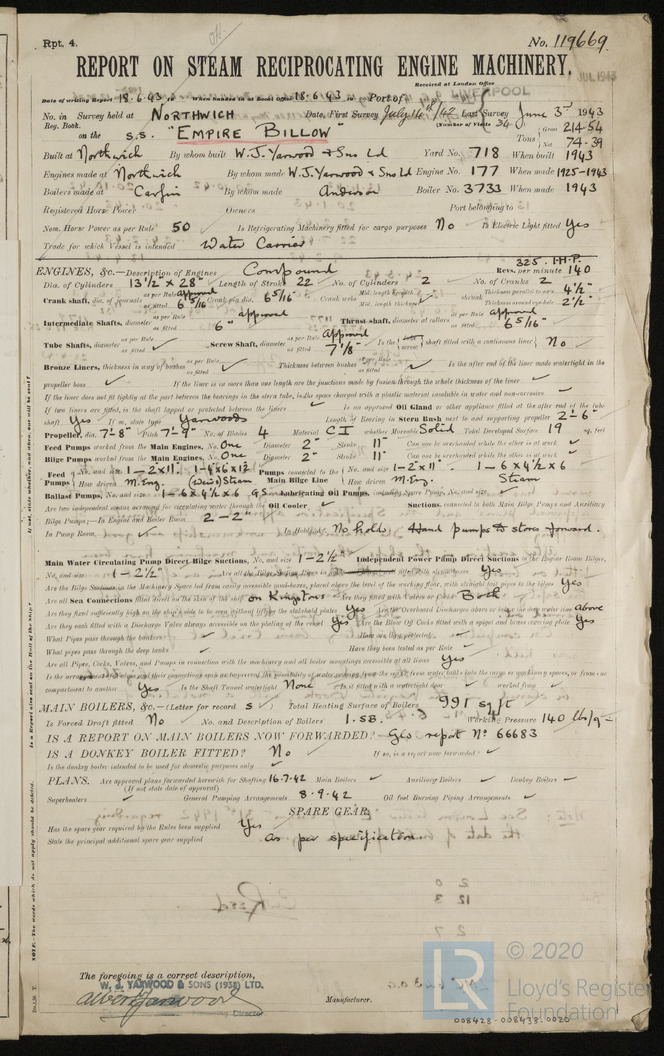 Rpt. 4.
No. 119669.
REPORT ON STEAM RECIPROCATING ENGINE MACHINERY.
Received at London Office
JUL 1943
Date of writing Report 18.6.43 When handed in at Local Office 18.6.43 Port of LIVERPOOL
No. in Reg. Book. Survey held at NORTHWICH Date, First Survey July 14th/42 Last Survey June 3rd 1943
(Number of Visits 34)
on the S.S. "EMPIRE BILLOW" Tons Gross 214.54 Net 74.39
Built at Northwich By whom built W.J. Yarwood & Sons Ld Yard No. 718 When built 1943
Engines made at Northwich By whom made W.J. Yarwood & Sons Ld Engine No. 177 When made 1925-1943
Boilers made at Carfin By whom made Anderson Boiler No. 3733 When made 1943
Registered Horse Power Owners Port belonging to
Nom. Horse Power as per Rule 50 Is Refrigerating Machinery fitted for cargo purposes No Is Electric Light fitted Yes
Trade for which Vessel is intended Water Carrier
ENGINES, &c.—Description of Engines Compound 325 . I.H.P. Revs. per minute 140
Dia. of Cylinders 13 1/2 x 28" Length of Stroke 22 No. of Cylinders 2 No. of Cranks 2
Crank shaft, dia. of journals as per Rule approved as fitted 6 5/16" Crank pin dia. 6 5/16" Crank webs Mid. length breadth Mid. length thickness Thickness parallel to axis 4 1/2" shrunk Thickness around eye-hole 2 1/2"
Intermediate Shafts, diameter as per Rule approved as fitted 6" Thrust shaft, diameter at collars as per Rule approved as fitted 6 5/16"
Tube Shafts, diameter as per Rule as fitted Screw Shaft, diameter as per Rule Approved as fitted 7 1/8" Is the screw shaft fitted with a continuous liner No
Bronze Liners, thickness in way of bushes as per Rule as fitted Thickness between bushes as per Rule as fitted Is the after end of the liner made watertight in the
propeller boss If the liner is in more than one length are the junctions made by fusion through the whole thickness of the liner
If the liner does not fit tightly at the part between the bearings in the stern tube, is the space charged with a plastic material insoluble in water and non-corrosive
If two liners are fitted, is the shaft lapped or protected between the liners Is an approved Oil Gland or other appliance fitted at the after end of the tube
shaft Yes If so, state type Yarwoods Length of Bearing in Stern Bush next to and supporting propeller 2'-6"
Propeller, dia. 7'-8" Pitch 7'-9" No. of Blades 4 Material C I whether Moveable Solid Total Developed Surface 19 sq. feet
Feed Pumps worked from the Main Engines, No. One Diameter 2" Stroke 11" Can one be overhauled while the other is at work
Bilge Pumps worked from the Main Engines, No. One Diameter 2" Stroke 11" Can one be overhauled while the other is at work
Feed Pumps No. and size 1-2x11". 1-4x6x12 How driven M. Eng. (Weirs) Steam Pumps connected to the Main Bilge Line No. and size 1-2"x11" 1-6x4 1/2x6 How driven M. Eng. Steam
Ballast Pumps, No. and size 1-6x4 1/2x6 G.S. Lubricating Oil Pumps, including Spare Pump, No. and size
Are two independent means arranged for circulating water through the Oil Cooler Suctions, connected to both Main Bilge Pumps and Auxiliary
Bilge Pumps;—In Engine and Boiler Room 2 - 2"
In Pump Room, In Holds, &c. No hold. Hand pumps to stores forward.
Main Water Circulating Pump Direct Bilge Suctions, No. and size 1-2 1/2" Independent Power Pump Direct Suctions to the Engine Room Bilges,
No. and size 1-2 1/2" Are all the Bilge Suction Yes
Are the Bilge Suctions in the Machinery Space led from easily accessible mud-boxes, placed above the level of the working floor, with straight tail pipes to the bilges Yes
Are all Sea Connections fitted direct on the skin of the ship on Kingstons Are they fitted with Valves or Cocks Both
Are they fixed sufficiently high on the ship's side to be seen without lifting the stokehold plates Yes Are the Overboard Discharges above or below the deep water line above
Are they each fitted with a Discharge Valve always accessible on the plating of the vessel Yes Are the Blow Off Cocks fitted with a spigot and brass covering plate Yes
What Pipes pass through the bunkers How are they protected
What pipes pass through the deep tanks Have they been tested as per Rule
Are all Pipes, Cocks, Valves, and Pumps in connection with the machinery and all boiler mountings accessible at all times Yes
Is the arrangement of valves and their connections such as to prevent the possibility of water passing from the sea or from water ballast tanks into the cargo or machinery spaces, or from one
compartment to another Yes Is the Shaft Tunnel watertight None Is it fitted with a watertight door worked from
MAIN BOILERS, &c.—(Letter for record S) Total Heating Surface of Boilers 991 sq/ft
Is Forced Draft fitted No No. and Description of Boilers 1. SB. Working Pressure 140 lbs/□"
IS A REPORT ON MAIN BOILERS NOW FORWARDED? Gls report No 66683
IS A DONKEY BOILER FITTED? No If so, is a report now forwarded?
Is the donkey boiler intended to be used for domestic purposes only
PLANS. Are approved plans forwarded herewith for Shafting 16.7.42 Main Boilers Auxiliary Boilers Donkey Boilers
(If not state date of approval)
Superheaters General Pumping Arrangements 8.9.42 Oil fuel Burning Piping Arrangements
SPARE GEAR.
Has the spare gear required by the Rules been supplied Yes
State the principal additional spare gear supplied as per specification
The foregoing is a correct description,
W. J. YARWOOD & SONS (1938) LTD.
Director
Manufacturer.
NOTE.—The words which do not apply should be deleted.
LR
© 2020
Lloyd's Register
Foundation
008428-008438-0020